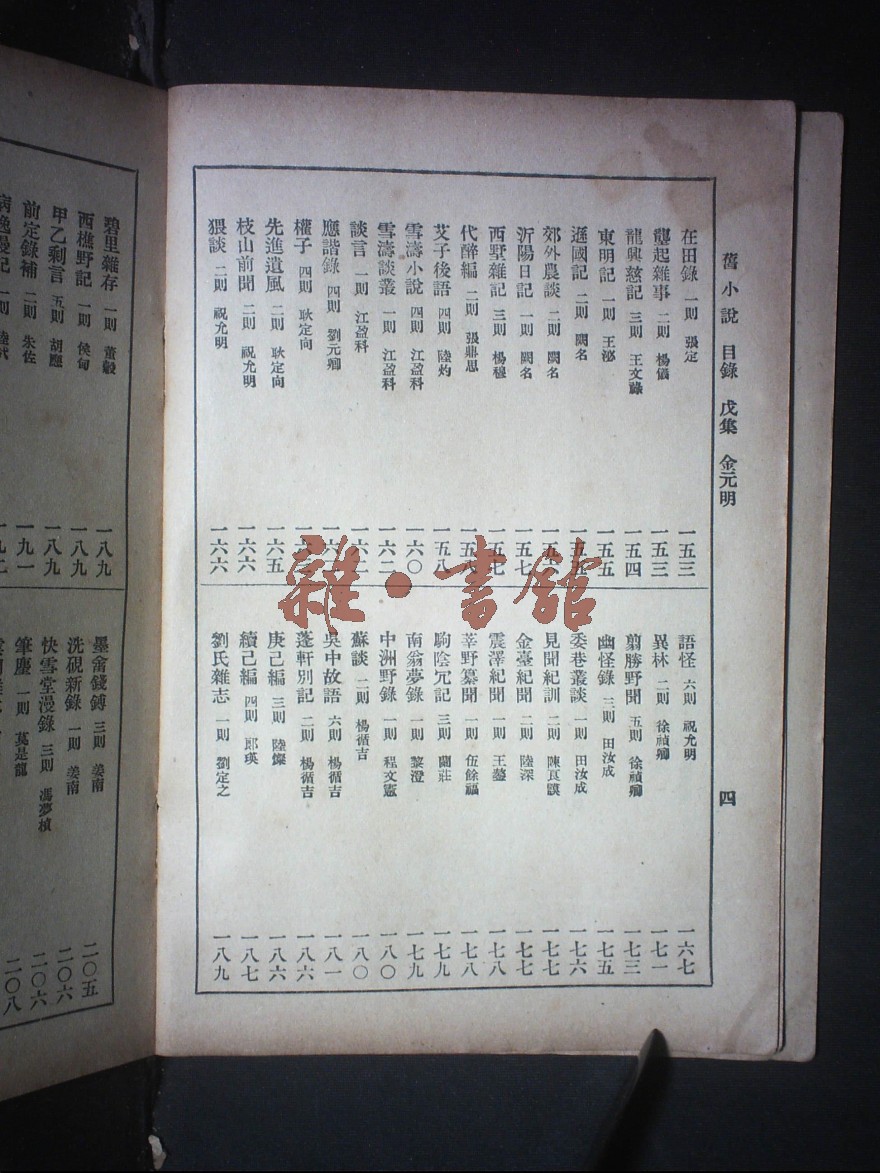 舊小說 目錄 戊集 金元明
四
在田錄 一則 張定 一五三
壟起雜事 二則 楊儀 一五三
龍興慈記 三則 王文祿 一五四
東明記 一則 王泌 一五五
遜國記 二則 闕名
郊外農談 二則 闕名
沂陽日記 一則 闕名 一五七
西墅雜記 三則 楊穆 一五七
代醉編 二則 張鼎思 一五八
艾子後語 四則 陸灼 一五八
雪濤小說 四則 江盈科 一六〇
雪濤談叢 一則 江盈科 一六二
談言 一則 江盈科 一六二
應諧錄 四則 劉元卿
權子 四則 耿定向
先進遺風 二則 耿定向 一六五
枝山前聞 二則 祝允明 一六六
猥談 二則 祝允明 一六六
語怪 六則 祝允明 一六七
異林 二則 徐禎卿 一七一
翦勝野聞 五則 徐禎卿 一七三
幽怪錄 三則 田汝成 一七五
委巷叢談 一則 田汝成 一七六
見聞紀訓 二則 陳良謨 一七七
金臺紀聞 二則 陸深 一七七
震澤紀聞 一則 王鏊 一七八
莘野纂聞 一則 伍餘福 一七八
駒陰冗記 三則 闌莊 一七九
南翁夢錄 一則 黎澄 一七九
中洲野錄 一則 程文憲 一八〇
蘇談 二則 楊循吉 一八〇
吳中故語 六則 楊循吉 一八一
蓬軒別記 二則 楊循吉 一八六
庚己編 三則 陸燦 一八六
續己編 四則 郎瑛 一八七
劉氏雜志 一則 劉定之 一八九
碧里雜存 一則 董穀 一八九
西樵野記 一則 侯甸 一八九
甲乙剩言 五則 胡應 一八九
前定錄補 二則 朱佐 一九一
病逸漫記 一則 陸 一九二
墨畬錢鎛 三則 姜南 二〇五
洗硯新錄 一則 姜南 二〇六
快雪堂漫錄 三則 馮夢禎 二〇六
筆麈 一則 莫是龍 二〇八
雜·書館